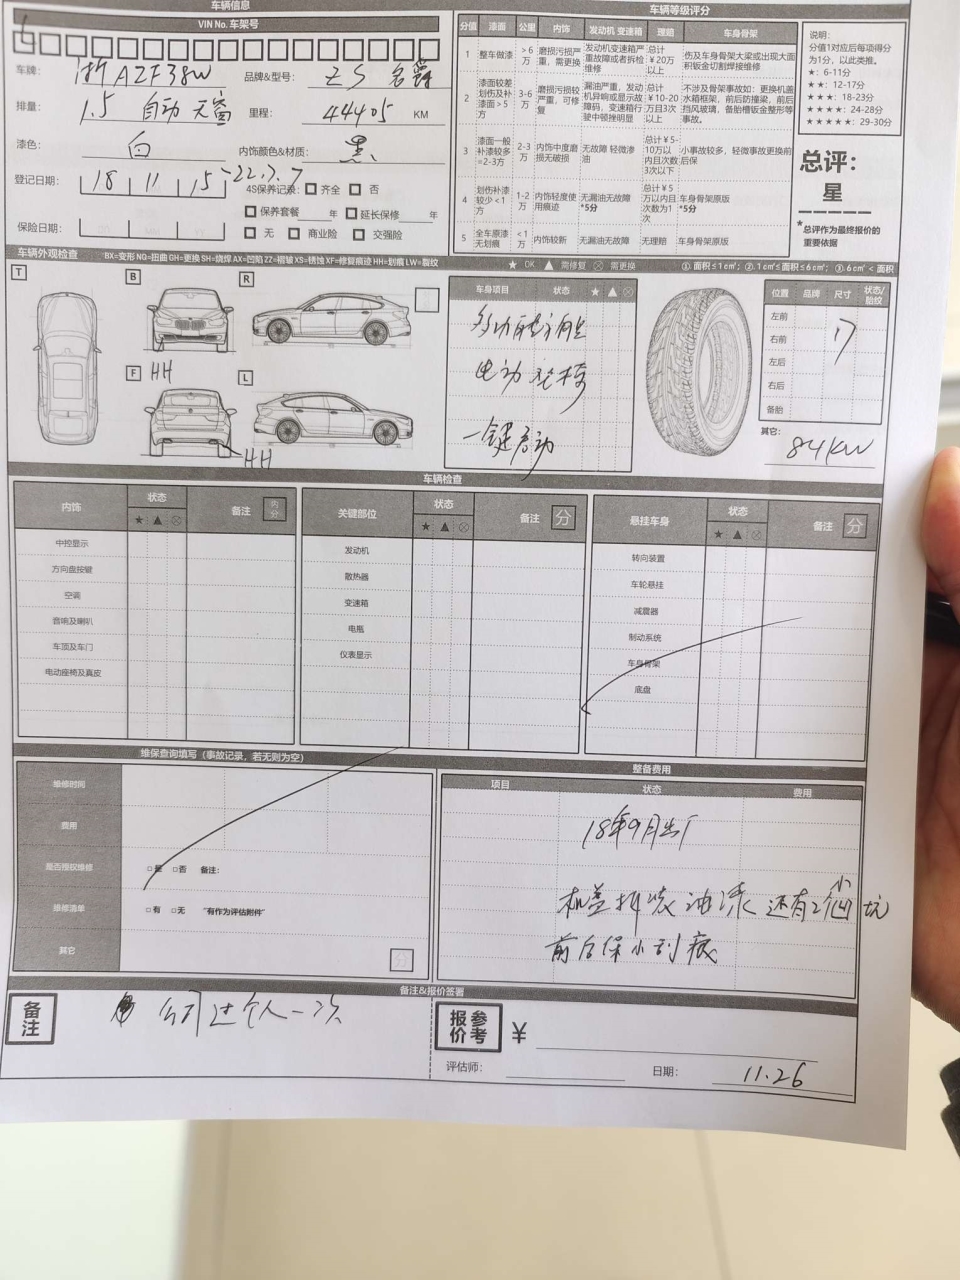 车辆信息
VIN No. 车架号
车牌： 浙AZF38W 品牌&型号： ZS 名爵
排量： 1.5 自动 天窗 里程： 44405 KM
漆色： 白 内饰颜色&材质： 黑
登记日期： 18 11 15 -22.7.7
4S保养记录： 齐全 否
保养套餐 年 延长保修 年
保险日期： 无 商业险 交强险
车辆等级评分
分值 漆面 公里 内饰 发动机 变速箱 理赔 车身骨架
1 整车做漆 >6万 磨损污损严重，需更换 发动机变速箱严重故障或者拆检维修 总计￥20万以上 伤及车身骨架大梁或出现大面积钣金切割焊接维修
2 漆面较差划伤及补漆面>5方 3-6万 磨损污损较严重，可修复 漏油严重，发动机异响或显示故障码，变速箱行驶中顿挫明显 总计￥10-20万且3次以上 不涉及骨架事故如：更换机盖水箱框架，前后防撞梁，前后挡风玻璃，备胎槽钣金整形等事故。
3 漆面一般补漆较多=2-3方 2-3万 内饰中度磨损无破损 无故障 轻微渗油 总计￥5-10万以内且次数3次以下 小事故较多，轻微事故更换前后保
4 划伤补漆较少<1方 1-2万 内饰轻度使用痕迹 无漏油无故障 *5分 总计￥5万以内且次数为1次 车身骨架原版 *5分
5 全车原漆无划痕 <1万 内饰较新 无漏油无故障 无理赔 车身骨架原版
说明：
分值1对应后每项得分为1分，以此类推。
★：6-11分
★★：12-17分
★★★：18-23分
★★★★：24-28分
★★★★★：29-30分
总评：
星
*总评作为最终报价的重要依据
车辆外观检查 BX=变形 NQ=扭曲 GH=更换 SH=烧焊 AX=凹陷 ZZ=褶皱 XS=锈蚀 XF=修复痕迹 HH=划痕 LW=裂纹 ★ OK ▲ 需修复 ⊗ 需更换 ①.面积≤1c㎡; ②.1c㎡≤面积≤6c㎡; ③.6c㎡<面积
T B R
F HH L
HH
车身项目 状态 ★ ▲ ⊗
电动
一键启动
位置 品牌 尺寸 状态/胎纹
左前
右前
左后
右后
备胎
17
其它： 84KW
车辆检查
内饰 状态 备注 内分
★ ▲ ⊗
中控显示
方向盘按键
空调
音响及喇叭
车顶及车门
电动座椅及真皮
关键部位 状态 备注 分
★ ▲ ⊗
发动机
散热器
变速箱
电瓶
仪表显示
悬挂车身 状态 备注 分
★ ▲ ⊗
转向装置
车轮悬挂
减震器
制动系统
车身骨架
底盘
维保查询填写（事故记录，若无则为空）
维修时间
费用
是否授权维修 □是 □否 备注：
维修清单 □有 □无 "有作为评估附件"
其它 分
整备费用
项目 状态 费用
18年9月出厂
机盖拆装油漆 还有2个小凹坑
前后保小刮痕
备注&报价签署
备注 公司过个人一次
报价参考 ￥
评估师： 日期： 11.26